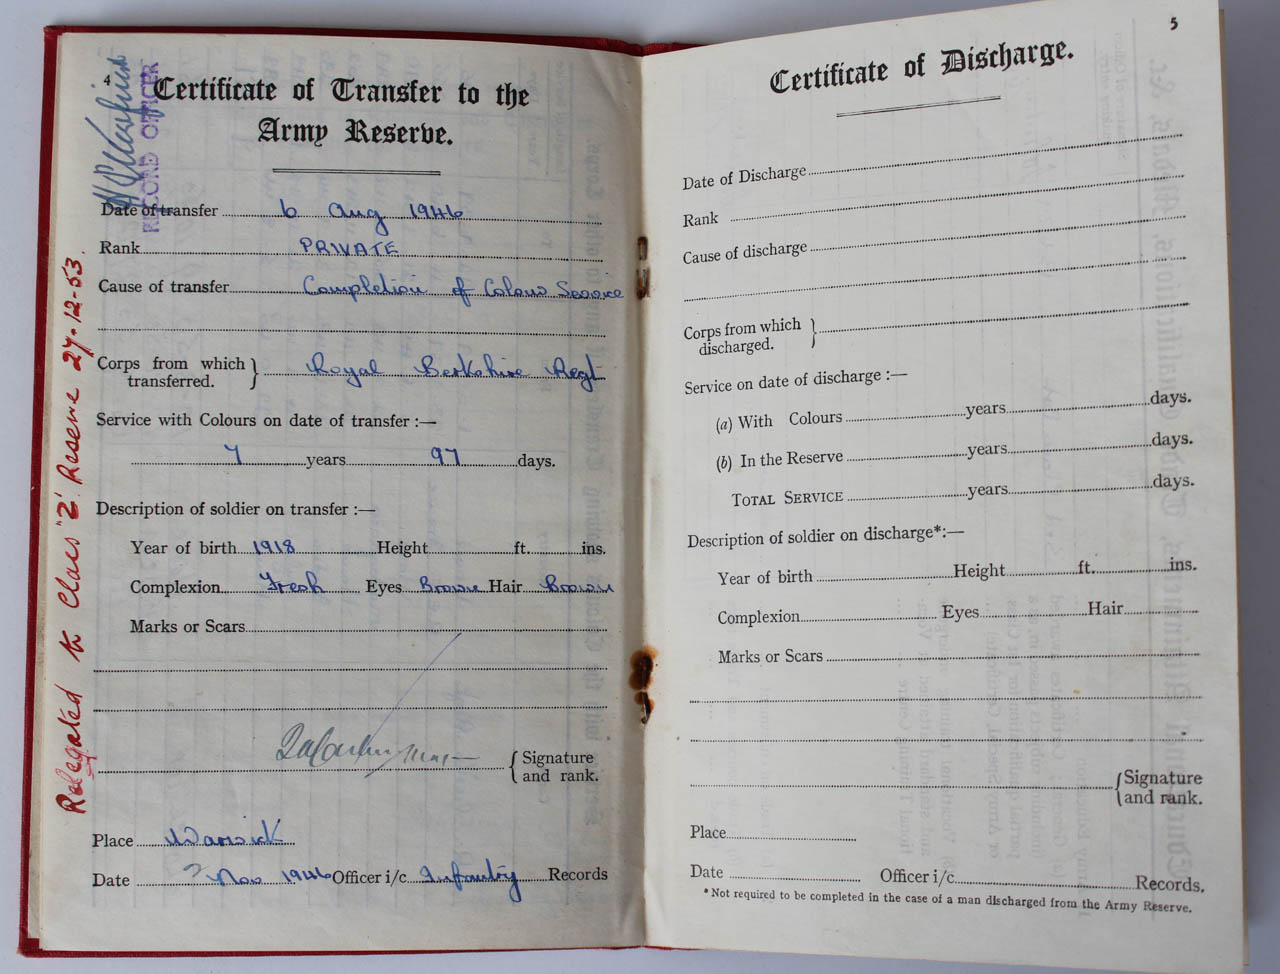 4
Certificate of Transfer to the
Army Reserve.
RECORD OFFICER
Date of transfer 6 Aug 1946
Rank PRIVATE
Cause of transfer Completion of Colour Service
Corps from which } Royal Berkshire Regt
transferred.
Service with Colours on date of transfer :—
7 years 97 days.
Description of soldier on transfer :—
Year of birth 1918 Height ft. ins.
Complexion Fresh Eyes Brown Hair Brown
Marks or Scars
{ Signature
and rank.
Place Warwick
Date Nov 1946 Officer i/c Infantry Records
Relegated to Class "Z" Reserve 27-12-53.
5
Certificate of Discharge.
Date of Discharge
Rank
Cause of discharge
Corps from which }
discharged.
Service on date of discharge :—
(a) With Colours years days.
(b) In the Reserve years days.
TOTAL SERVICE years days.
Description of soldier on discharge*:—
Year of birth Height ft. ins.
Complexion Eyes Hair
Marks or Scars
{ Signature
and rank.
Place
Date Officer i/c Records.
* Not required to be completed in the case of a man discharged from the Army Reserve.